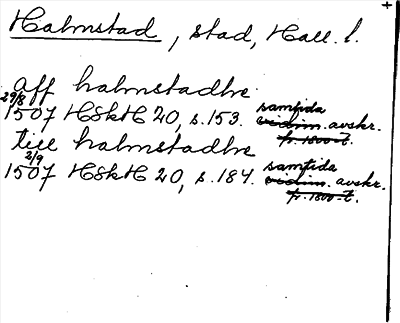 Halmstad, stad, Hall. l.
aff halmstadhe
29/8 1507 HSkH 20, s. 153. samtida vidim. avskr. fr. 1800-t.
till halmstadhe
2/9 1507 HSkH 20, s. 184. samtida vidim. avskr. fr. 1800-t.